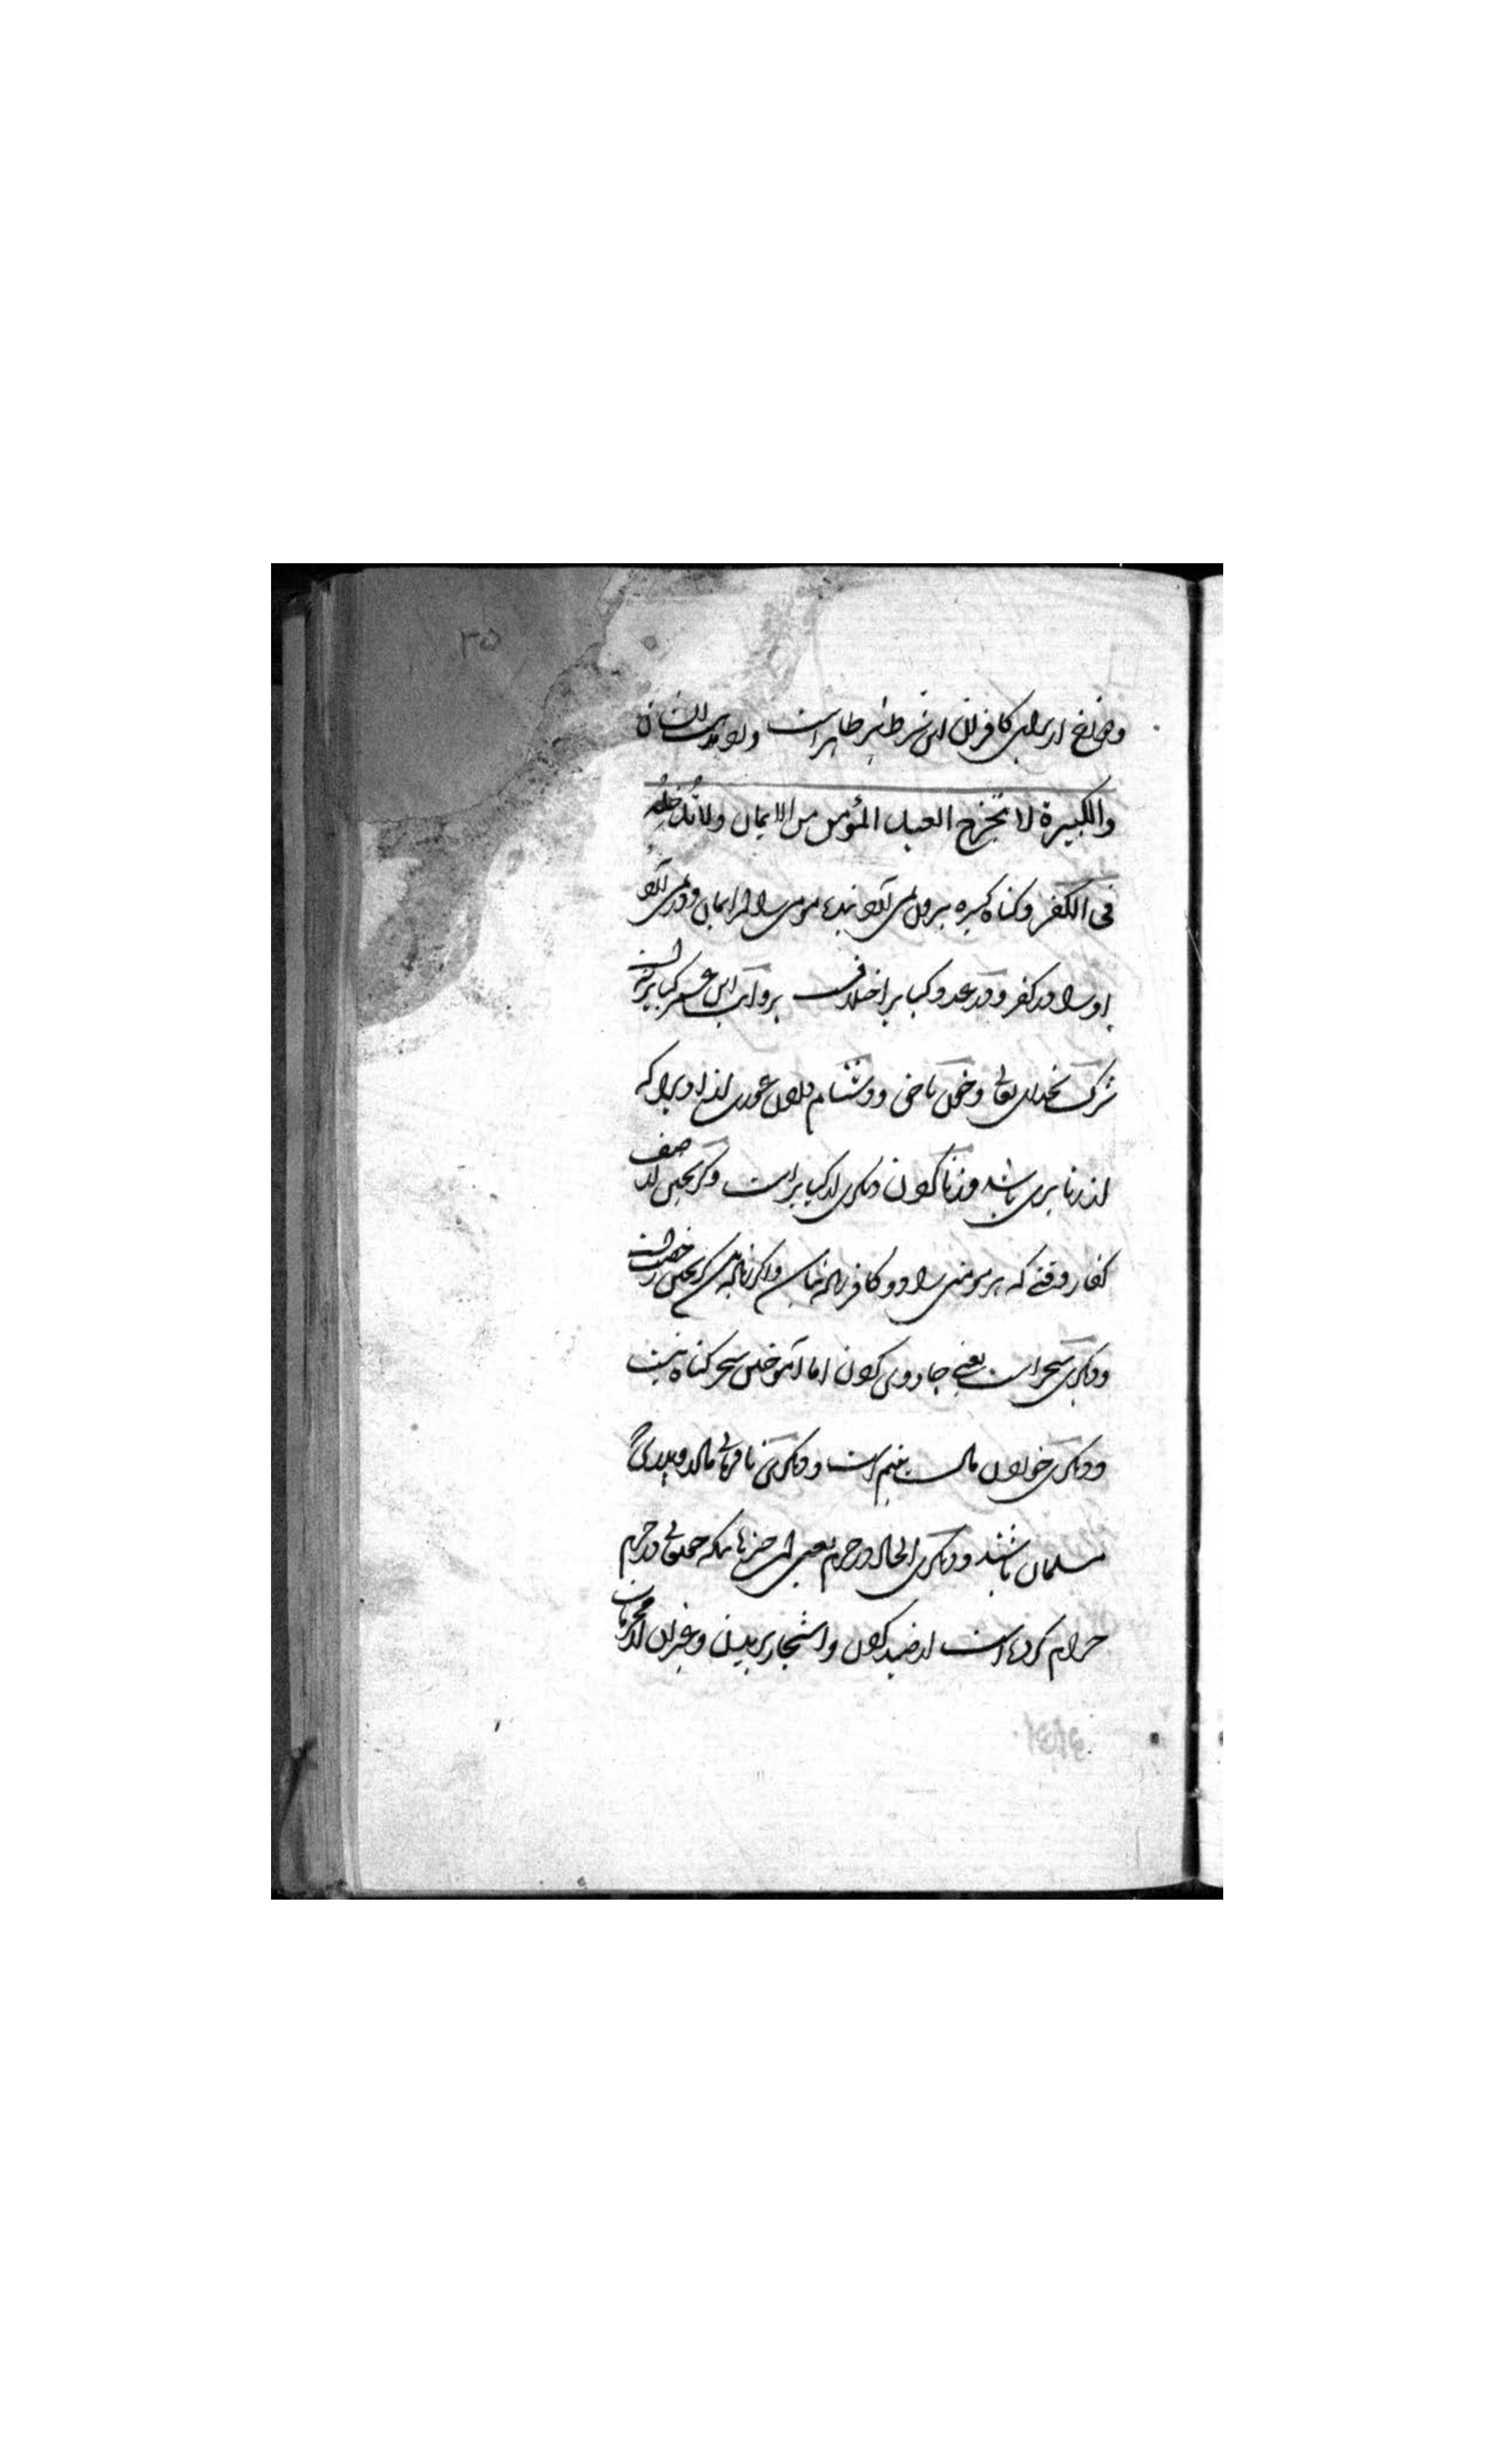 ۳۵
ودوزخ از برای کافران این شرط نیز ظاهر است
والكبيرة لا تخرج العبد المؤمن من الايمان ولا تدخله
فى الكفر وکناه کبیره بیرون نمی آورد بنده مومن را از ایمان ودر نمی آورد
او را در کفر ودر عدد کبایر اختلاف بروایت ابن عمر کبایر نه است
شرک بخدای تعالی وخون ناحق ودشنام دادن عورتی را که
از زنا بری باشد وزنا کردن دیکری از کبایر است وکریختن از صف
کفار وقتی که هر مومنی را دو کافر باشد واکر زیاده کریختن رخصت است
ودیکری سحر است یعنی جادوی کردن اما آموختن سحر کناه نیست
ودیکری خوردن مال یتیم است ودیکری نافرمانی مادر وپدر که
مسلمان باشند ودیکری الحاد در حرم یعنی از چیزهائیکه حق تعالی در حرم
حرام کرده است از صید کردن واشجار بریدن وغیر آن از محرمات